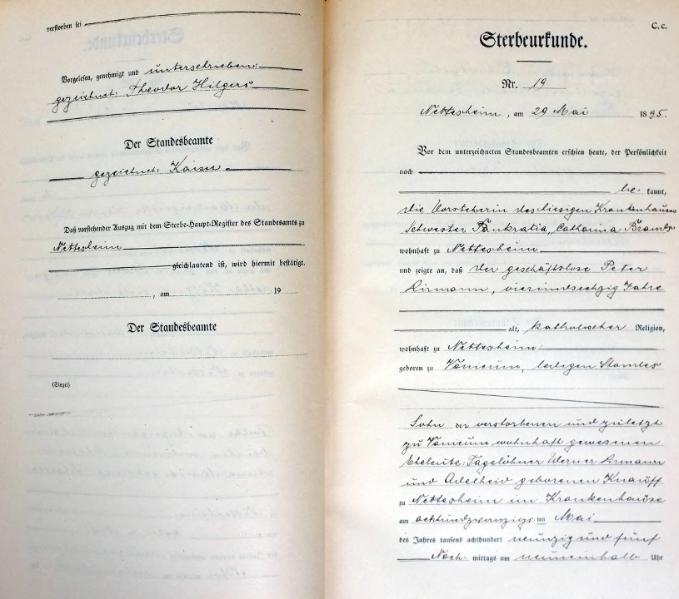 verstorben sei
Vorgelesen, genehmigt und unterschrieben:
gezeichnet: Theodor Hilgers
Der Standesbeamte
gezeichnet: Kaiser
Daß vorstehender Auszug mit dem Sterbe-Haupt-Register des Standesamts zu
Nettesheim
gleichlautend ist, wird hiermit bestätigt.
, am 19
Der Standesbeamte
(Siegel)
C. c.
Sterbeurkunde.
Nr. 19
Nettesheim, am 29 Mai 1895.
Vor dem unterzeichneten Standesbeamten erschien heute, der Persönlichkeit
nach
be kannt,
die Vorsteherin des hiesigen Krankenhauses
Schwester Pankratia, Catharina
wohnhaft zu Nettesheim
und zeigte an, daß der geschäftslose Peter
Airmann, vierundsechzig Jahre
alt, katholischer Religion,
wohnhaft zu Nettesheim
geboren zu Vanicum, ledigen Standes
Sohn der verstorbenen und zuletzt
zu Vanicum wohnhaft gewesenen
Eheleute: Tagelöhner Werner Airmann
und Adelheid geborenen Knauff
zu Nettesheim im Krankenhause
am achtundzwanzigsten Mai
des Jahres tausend achthundert neunzig und fünf
Nach mittags um neuneinhalb Uhr